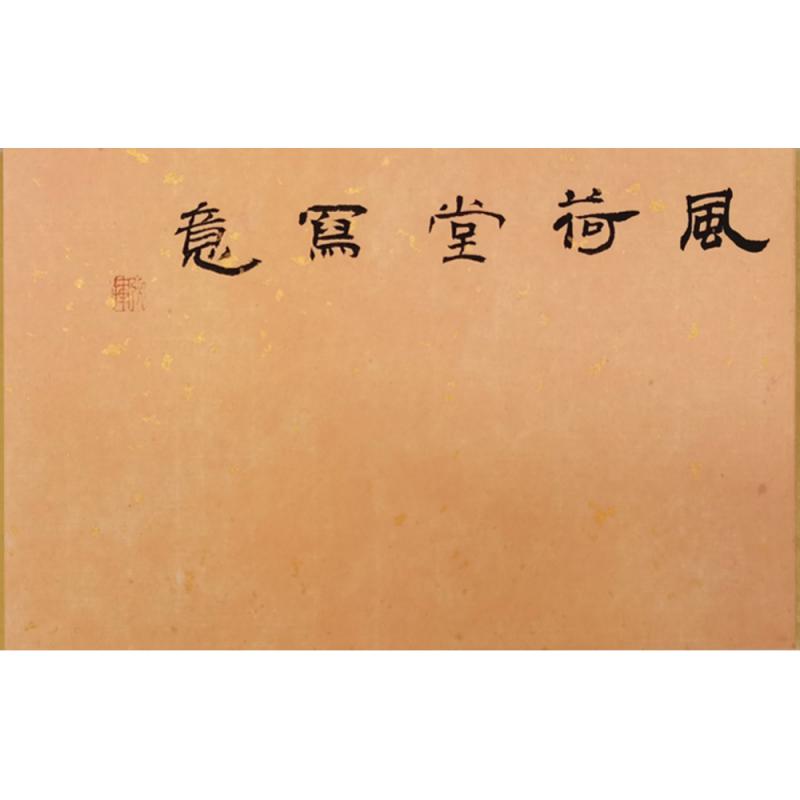 風荷堂寫意